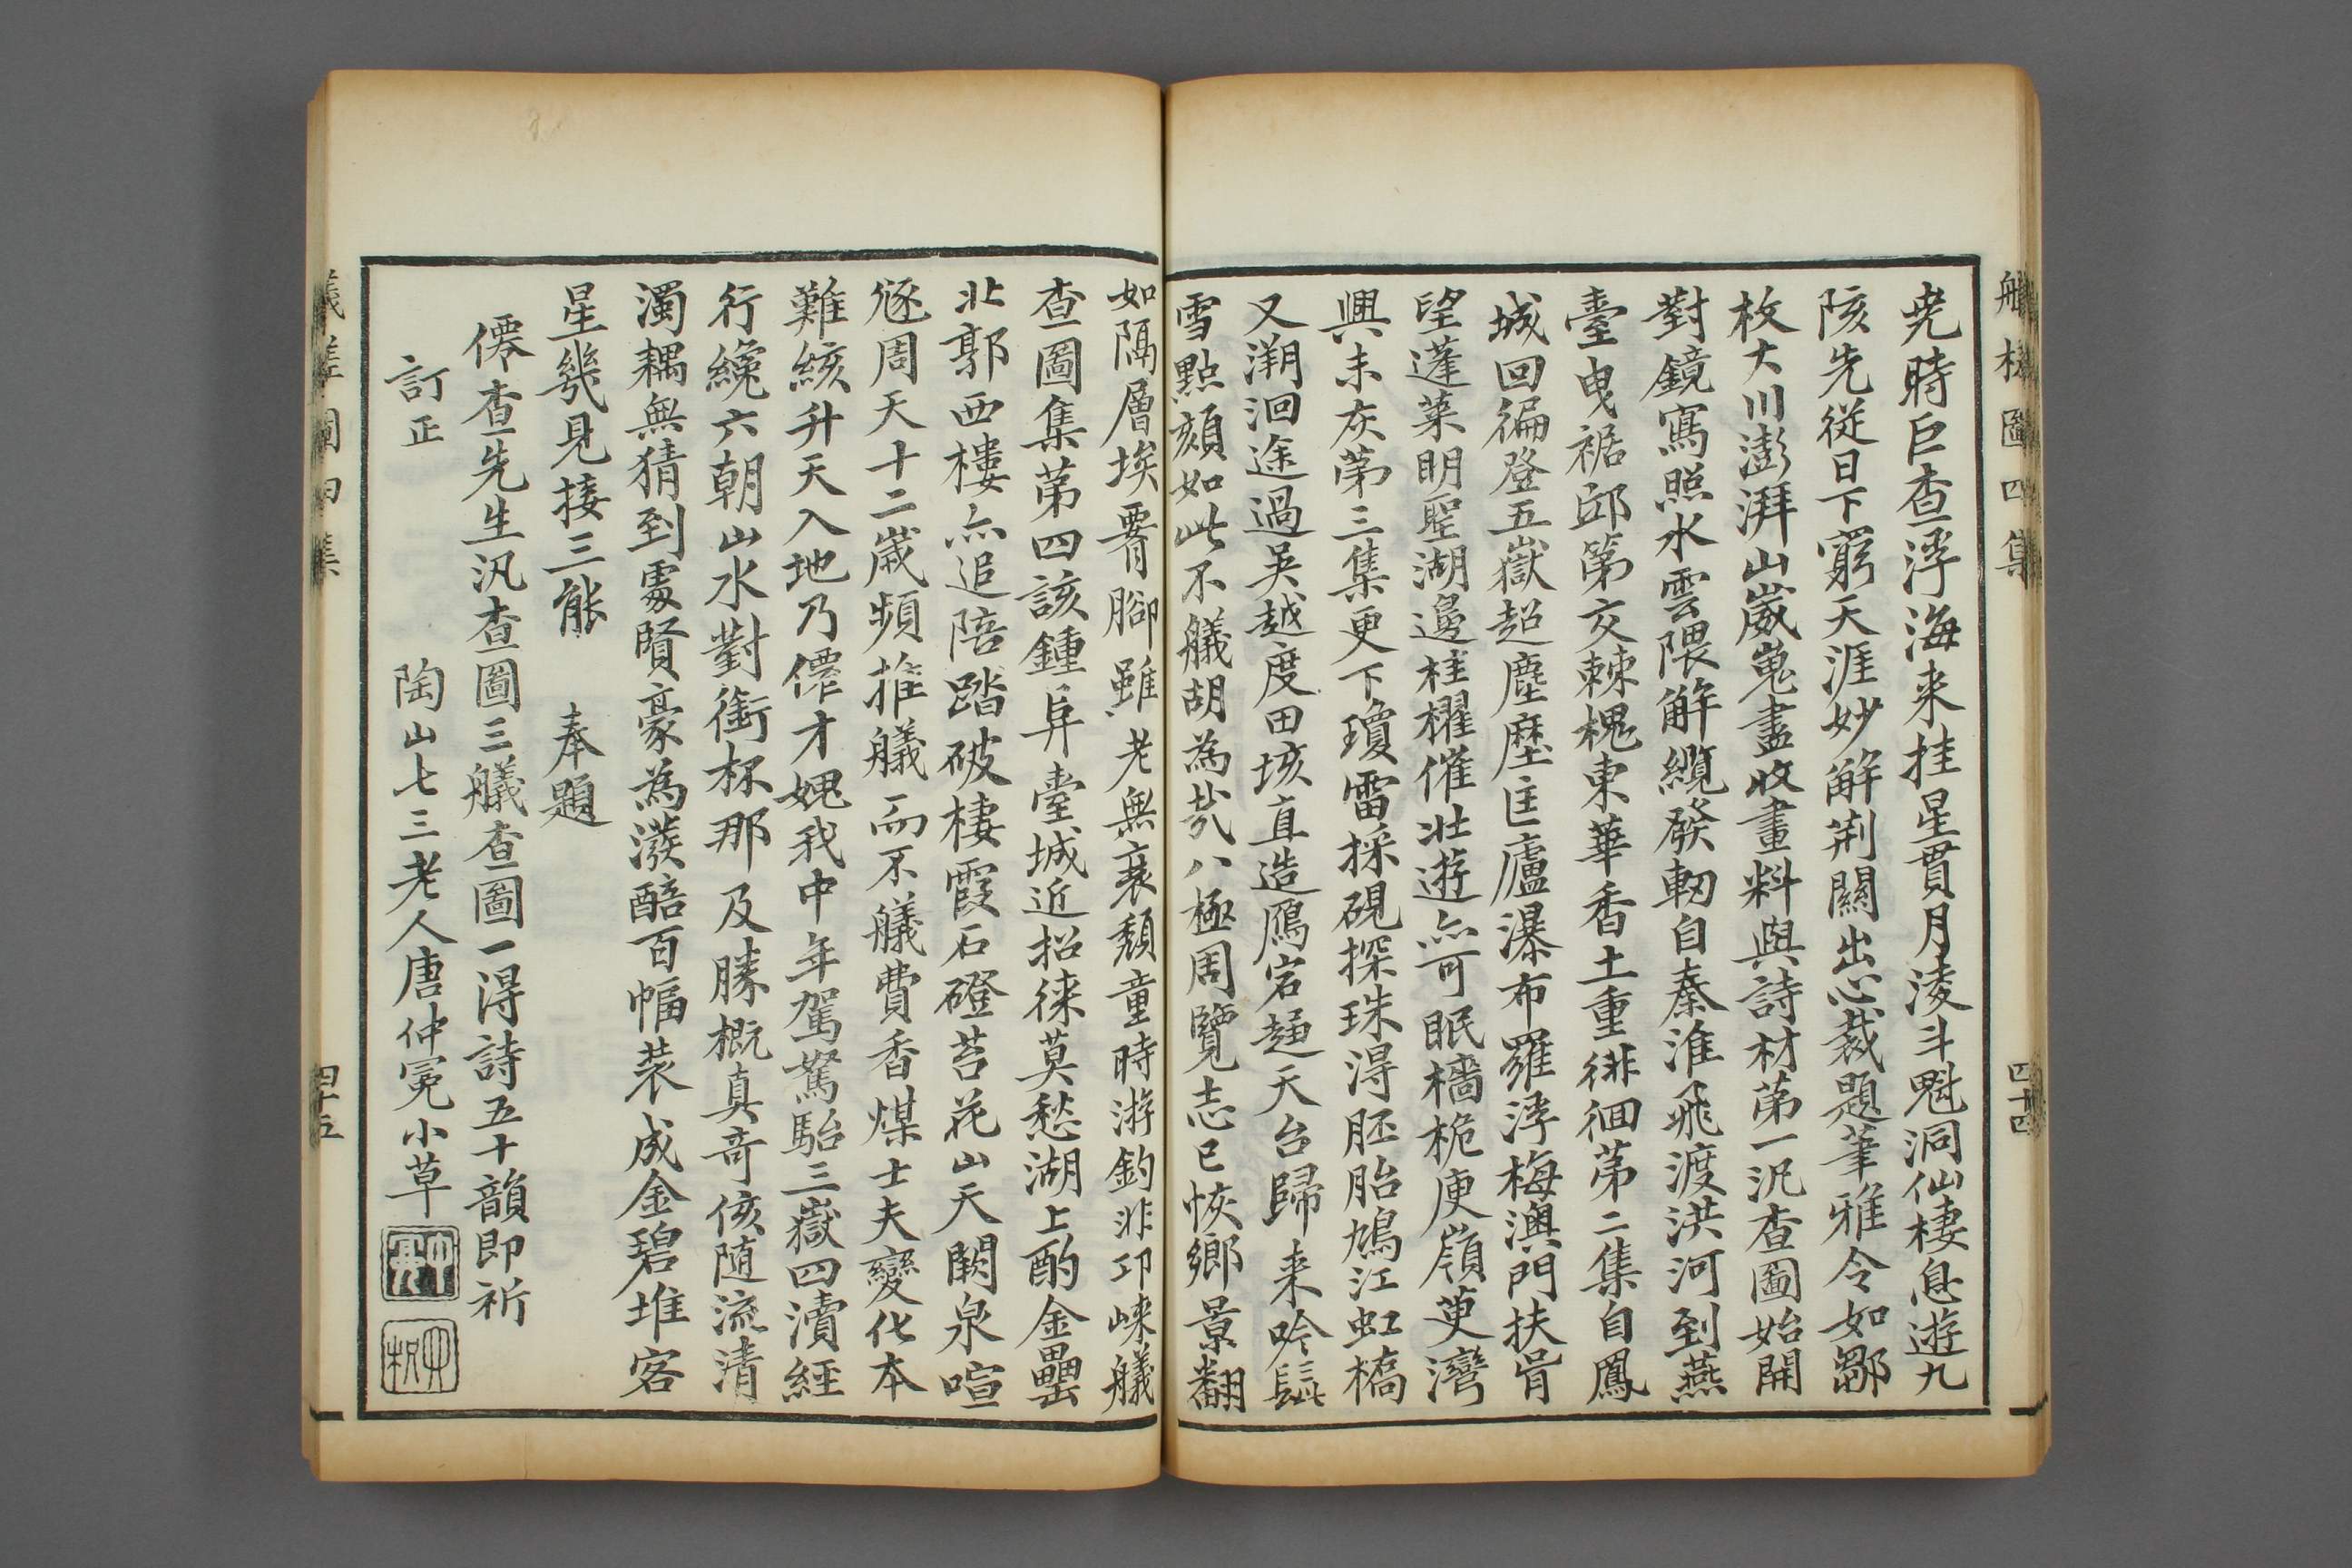 艤槎圖四集
四十四
堯時巨查浮海来挂星貫月淩斗魁洞仙棲息遊九
陔先從日下窮天涯妙解荆關出心裁題筆雅令如鄒
枚大川澎湃山崴嵬盡收畫料與詩材第一汎查圖始開
對鏡寫照水雲隈解纜發軔自秦淮飛渡洪河到燕
臺曳裾邸第交棘槐東華香土重徘徊第二集自鳳
城回徧登五嶽超塵壓匡廬瀑布羅浮梅澳門扶胥
望蓬萊明聖湖邊桂櫂催壯遊亦可眠檣桅庾嶺萸灣
興未灰第三集更下瓊雷採硯探珠得胚胎鳩江虹橋
又溯洄途過吳越度田垓直造鴈宕趨天台歸来吟髭
雪點頦如此不艤胡為哉八極周覽志已恢鄉景翻
如隔層埃要腳雖老無衰頹童時游釣非邛崍艤
查圖集第四該鍾阜臺城近招徠莫愁湖上酌金罍
北郭西樓亦追陪踏破棲霞石磴苔花山天闕泉喧
豗周天十二歲頻推艤而不艤費香煤士夫變化本
難絃升天入地乃僊才媿我中年駕駑駘三嶽四瀆經
行纔六朝山水對銜杯那及勝概真奇侅随流清
濁耦無猜到處賢豪為潑醅百幅装成金碧堆客
星幾見接三能　奉題
僊查先生汎查圖三艤查圖一得詩五十韻即祈
訂正　陶山七三老人唐仲冕小草
艤槎圖四集
四十五